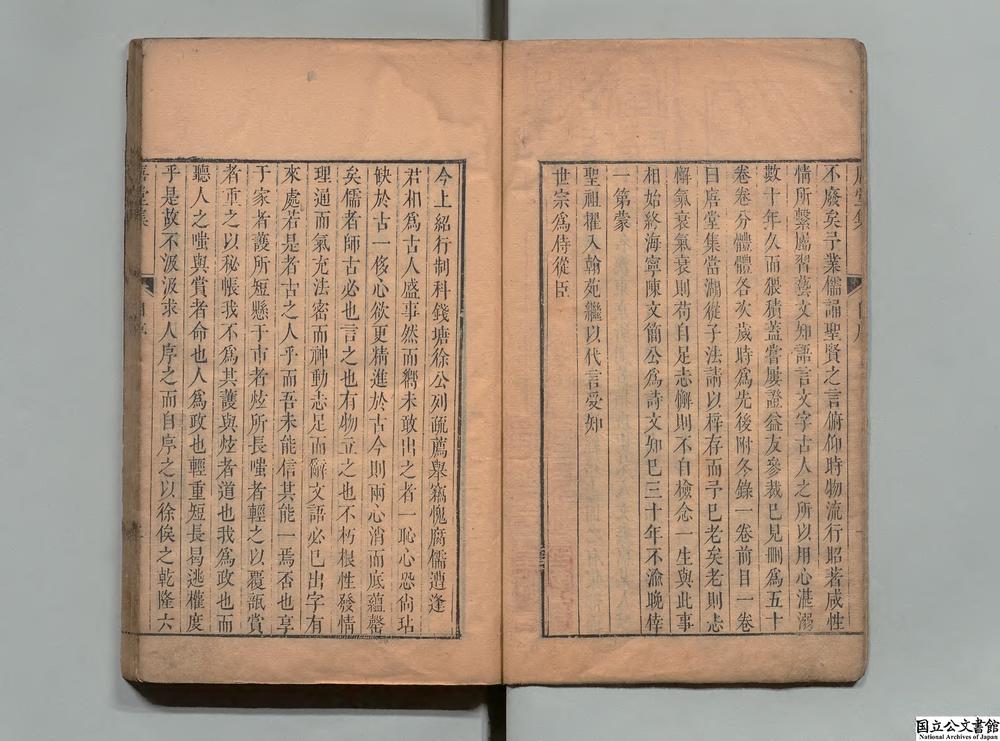 不廢矣予業儒誦聖賢之言俯仰時物流行昭著咸性
情所繫屬習藝文知語言文字古人之所以用心湛溺
數十年久而猥積蓋嘗屢證益友參裁已見刪爲五十
卷卷分體體各次歲時爲先後附冬錄一卷前目一卷
曰㢈堂集當湖從子法請以梓存而予已老矣老則忐
懈氣衰氣衰則苟自足志懈則不自檢念一生與此事
相始終海寧陳文簡公爲詩文知已三十年不渝晚倖
一第蒙
聖祖擢入翰苑繼以代言受知
世宗爲侍從臣
今上紹行制科錢塘徐公列疏薦舉竊愧腐儒遭逢
君相爲古人盛事然而嚮未敢出之者一恥心恐尚玷
缺於古一侈心欲更精進於古今則兩心消而底蘊罄
矣儒者師古必也言之也有物立之也不朽根性發情
理通而氣充法密而神動志足而辭文語必已出字有
來處若是者古之人乎而吾未能信其能一焉否也享
于家者護所短懸于市者炫所長嗤者輕之以覆瓿賞
者重之以秘帳我不爲其護與炫者道也我爲政也而
聽人之嗤與賞者命也人爲政也輕重短長曷逃權度
乎是故不汲汲求人序之而自序之以徐俟之乾隆六
堂集
自序
国立公文書館
National Archives of Japan